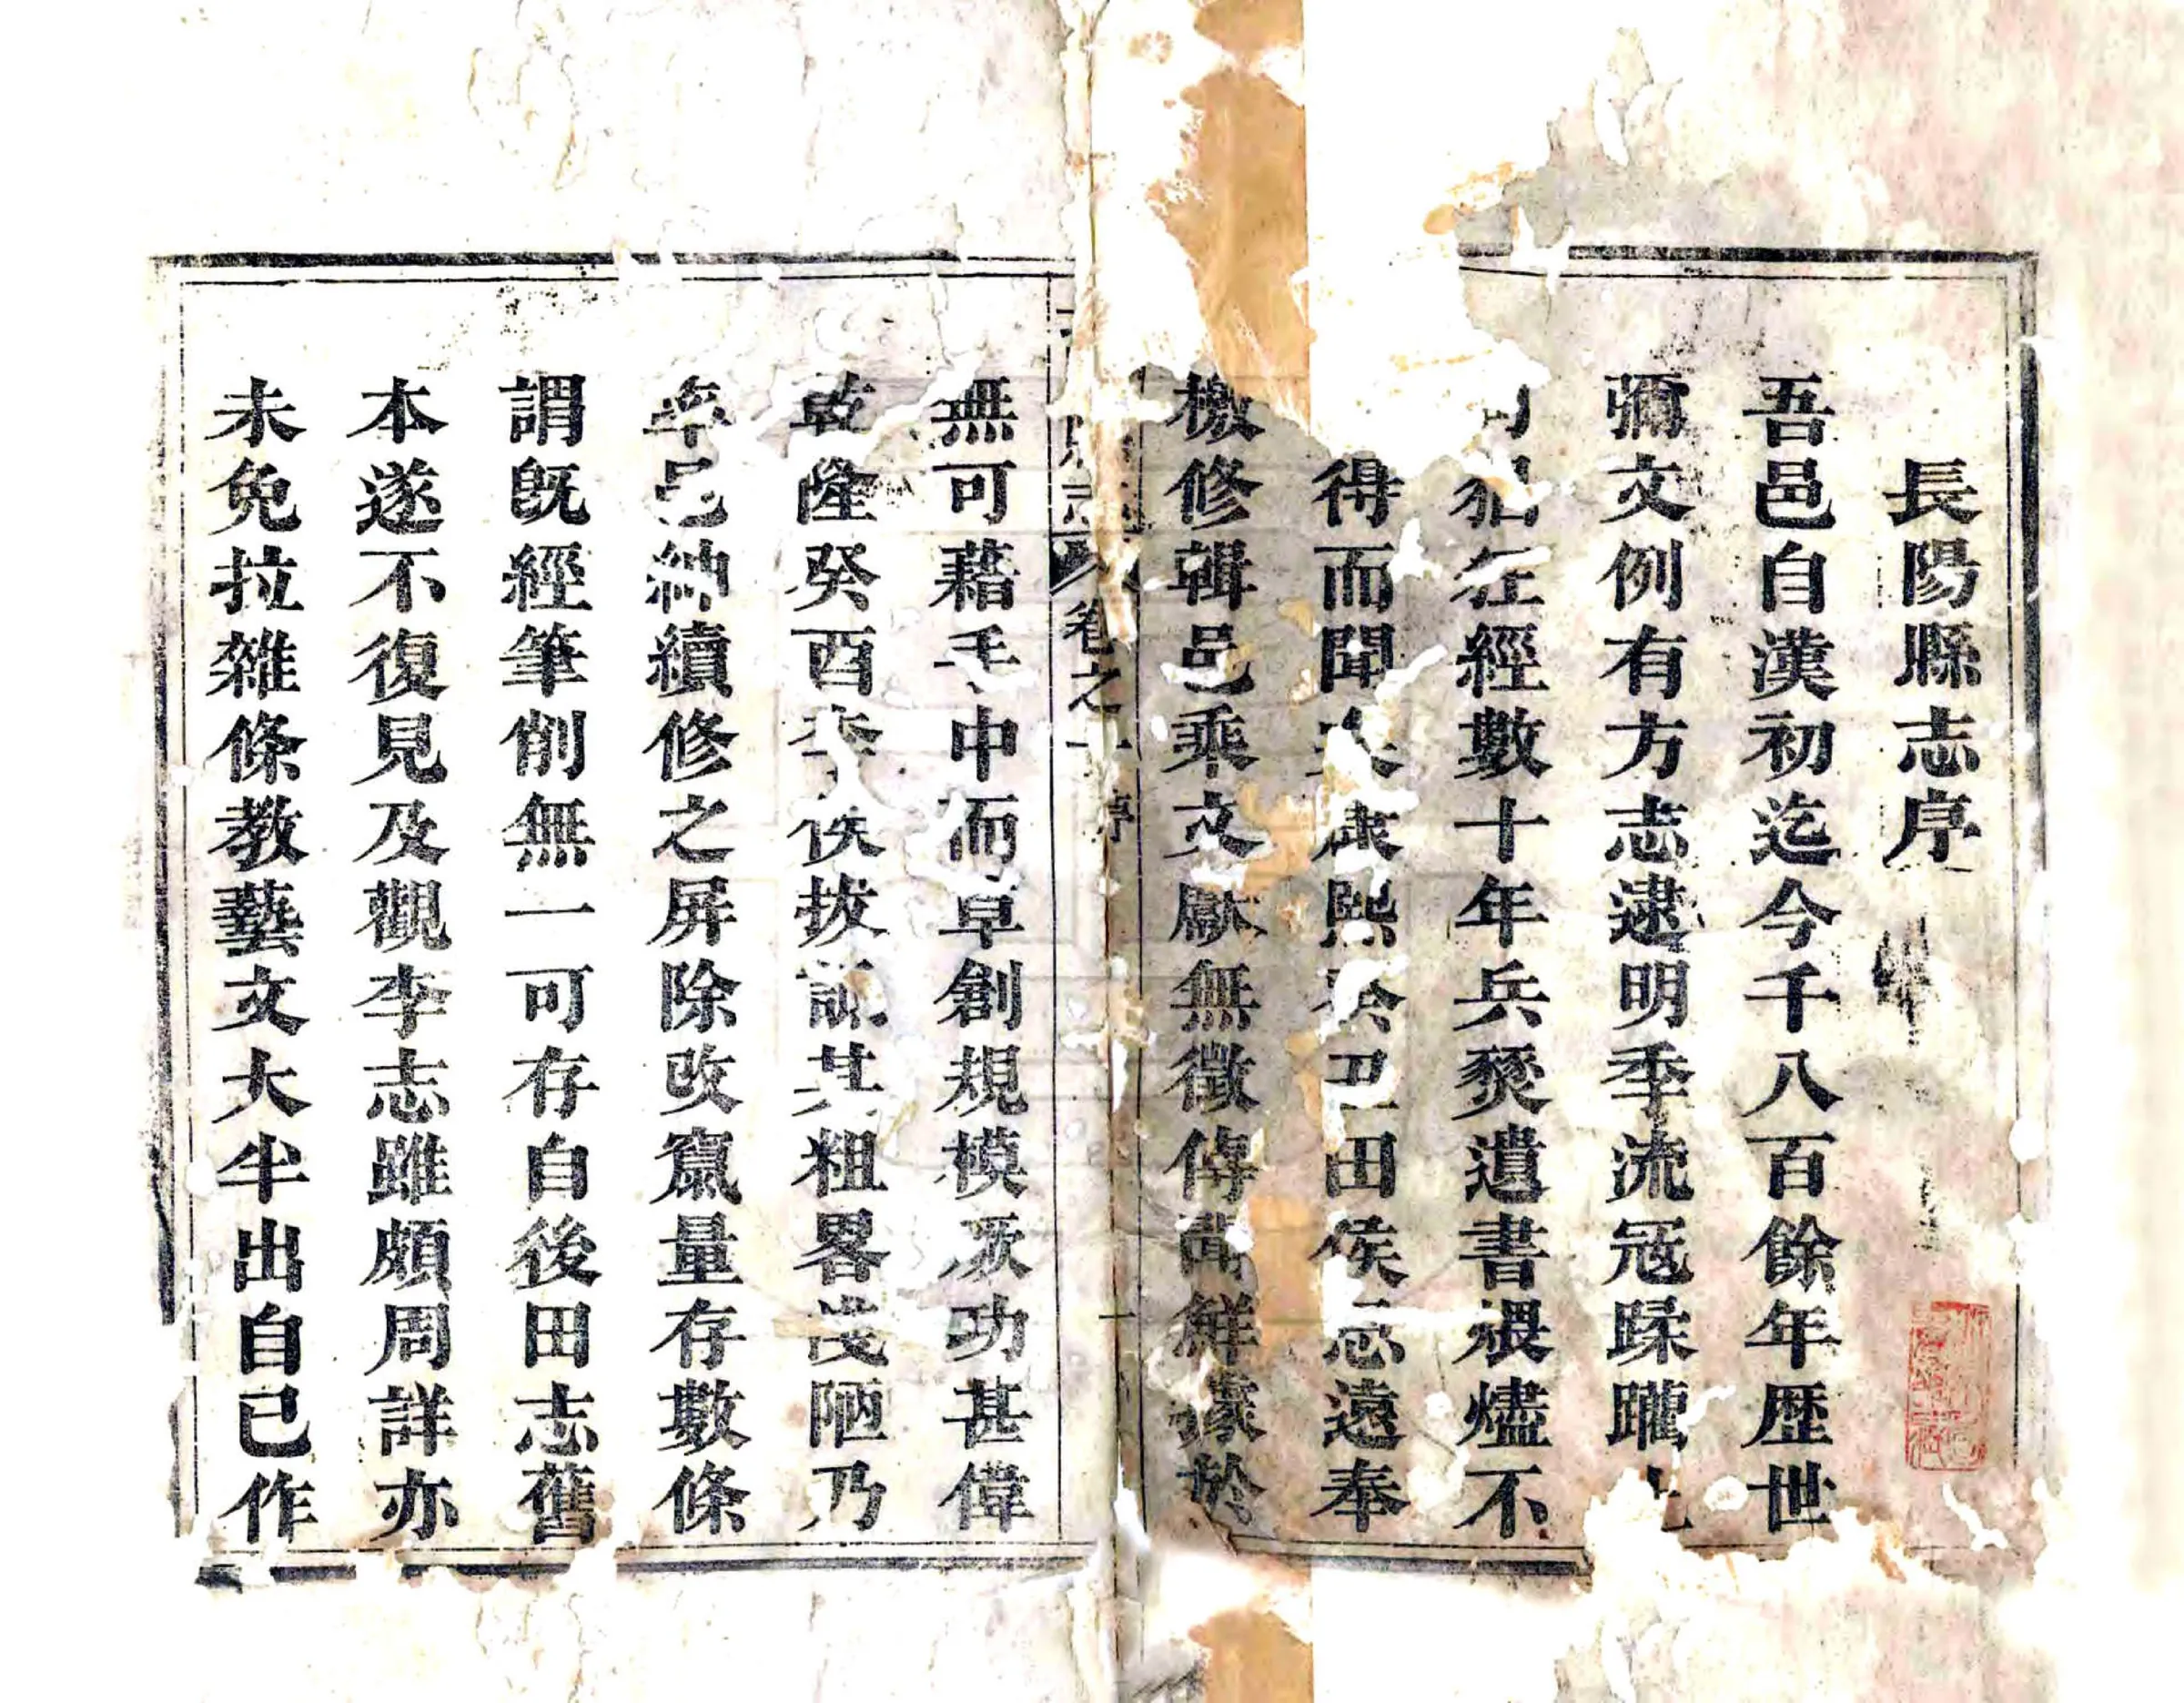 長陽縣志序
吾邑自漢初迄今千八百餘年歷世
彌文例有方志逮明季流冦蹂躪
猖狂經數十年兵燹遺書煨燼不
得而聞矣康熙癸丑田侯恩遠奉
檄修輯邑乘文獻無徵傳聞鮮據於
卷之一 序
無可藉手中而草創規模厥功甚偉
乾隆癸酉李侯拔訊其粗畧淺陋乃
率邑紳續修之屏除改竄量存數條
謂旣經筆削無一可存自後田志舊
本遂不復見及觀李志雖頗周詳亦
未免拉雜條教藝文大半出自己作